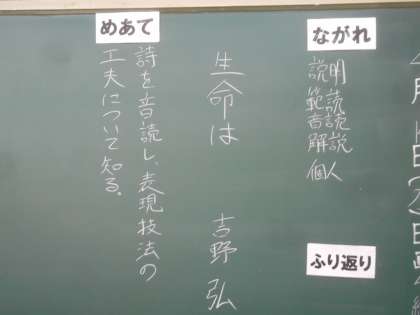 ながれ
説明
範読
音読
解説
個人
ふり返り
生命は 吉野 弘
めあて
詩を音読し、表現技法の
工夫について知る。